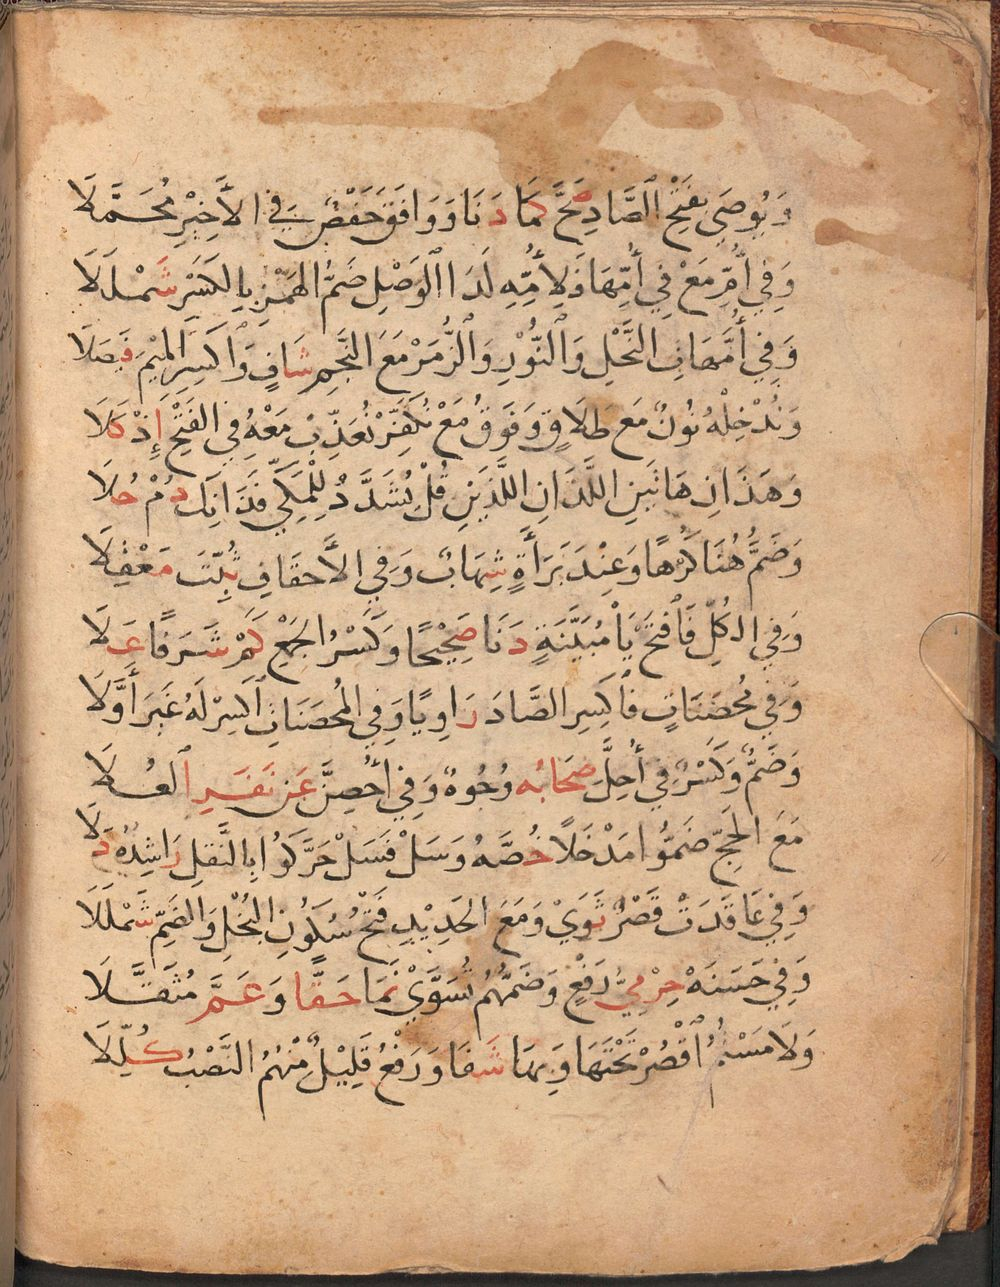 وَيُوصَى بِفَتْحِ الصَّادِ صَحَّ كَمَا دَنَا وَوَافَقَ حَفْصٌ فِي الأَخِيْرِ مُحَمَّلَا
وَفِي أُمِّ مَعْ فِي أُمِّهَا فَلِأُمِّهِ لَدَا الْوَصْلِ ضَمُّ الهَمْزِ بِالكَسْرِ شَمْلَلَا
وَفِي أُمَّهَاتِ النَّحْلِ وَالنُّوْرِ وَالزُّمَرْ مَعَ النَّجْمِ شَافٍ وَاكْسِرِ المِيْمَ فَيْصَلَا
وَنُدْخِلْهُ نُونٌ مَع طَلَاقٍ وَفَوْقُ مَعْ نُكَفِّرْ نُعَذِّبْ مَعْهُ فِي الفَتْحِ إِذْ كَلَا
وَهَذَانِ هَاتَيْنِ اللَّذَانِ اللَّذَيْنِ قُلْ يُشَدَّدُ لِلْمَكِّي فَذَانِكَ دُمْ حُلَا
وَضَمَّ هُنَا كَرْهًا وَعِنْدَ بَرَأَةٍ شِهَابٌ وَفِي الأَحقَافِ ثُبِّتَ مَعْقِلَا
وَفِي الكُلِّ فَافْتَحْ يَا مُبَيَّنَةٍ دَنَا صَحِيْحًا وَكَسْرُ الجَمْعِ كَمْ شَرَفًا عَلَا
وَفِي مُحْصَنَاتٍ فَاكْسِرِ الصَّادَ رَاوِيًا وَفِي المُحْصَنَاتِ اكْسِرْ لَهُ غَيْرَ أَوَّلَا
وَضَمٌّ وَكَسْرٌ فِي أُحِلَّ صَحَابُه وُجُوهٌ وَفِي أُحْصِنَّ عَنْ نَفَرِ العُلَا
مَعَ الحَجِّ ضَمُّوا مَدْخَلًا خُصَّهُ وَسَلْ فَسَلْ حَرَّكُوا بِالنَّقْلِ رَاشِدُهُ دَلَا
وَفِي عَاقَدَتْ قَصْرٌ ثَوَيْ وَمَعَ الحَدِيْدِ فَتْحُ سُكُونِ البُخْلِ وَالضَّمِّ شَمْلَلَا
وَفِي حَسَنَهْ حِرْمِيُّ رَفْعٍ وَضَمُّهُم تُسَوَّيْ نَمَا حَقًّا وَعَمَّ مُثَقَّلَا
وَلَامَسْتُمُ اقْصُرْ تَحْتَهَا وَبِهَا شَفَا وَرَفْعُ قَلِيْلٌ مِنْهُمُ النَّصْبَ كُلِّلَا